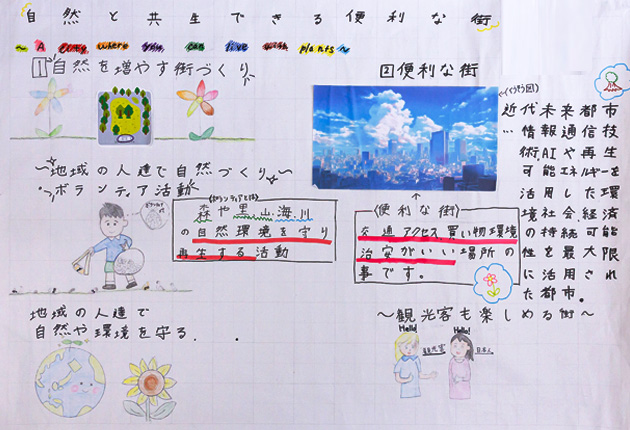 自然と共生できる便利な街
~A city where you can live with plants~
1自然を増やす街づくり
~地域の人達で自然づくり~
ボランティア活動
森や里、山、海、川
の自然環境を守り
再生する活動
地域の人達で
自然や環境を守る.
2便利な街
近代未来都市
…情報通信技
術,AIや再生
可能エネルギーを
活用した環
境、社会、経済
の持続可能
性を最大限
に活用され
た都市。
〈便利な街〉
交通アクセス,買い物環境
治安がいい場所の
事です。
~観光客も楽しめる街~
Hello!
Hello!
観光客
日本人